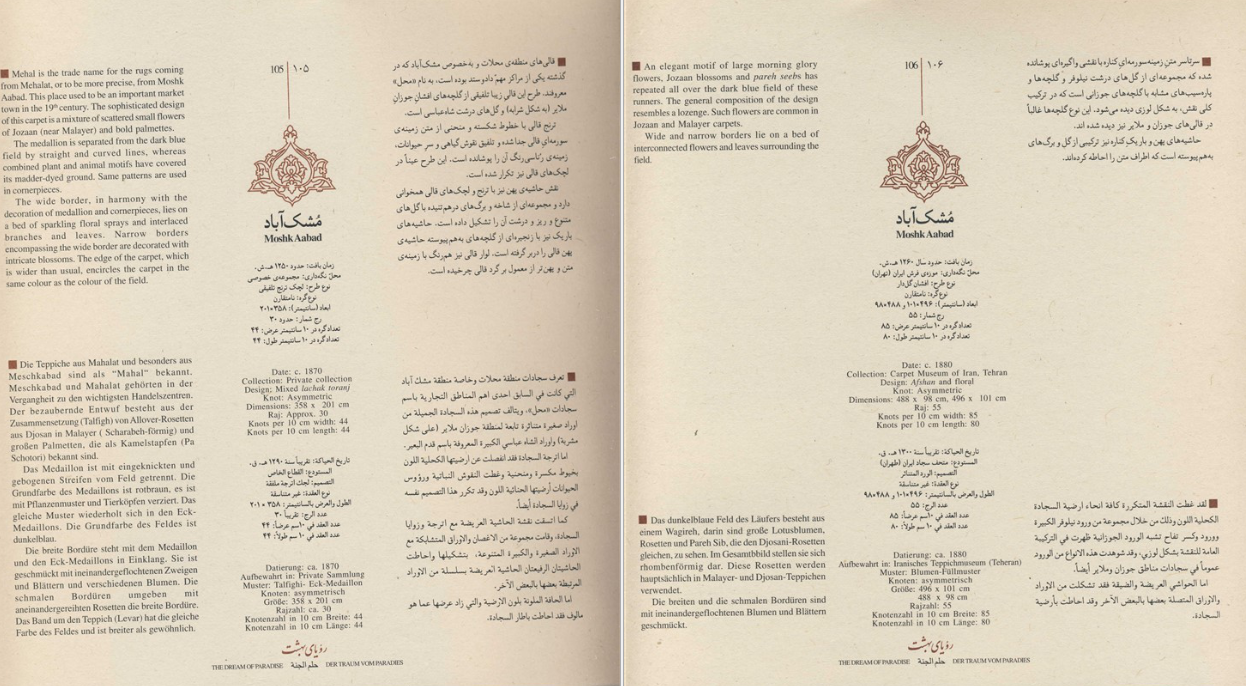 Mehal is the trade name for the rugs coming
from Mehalat, or to be more precise, from Moshk
Aabad. This place used to be an important market
town in the 19th century. The sophisticated design
of this carpet is a mixture of scattered small flowers
of Jozaan (near Malayer) and bold palmettes.
The medallion is separated from the dark blue
field by straight and curved lines, whereas
combined plant and animal motifs have covered
its madder-dyed ground. Same patterns are used
in cornerpieces.
The wide border, in harmony with the
decoration of medallion and cornerpieces, lies on
a bed of sparkling floral sprays and interlaced
branches and leaves. Narrow borders
encompassing the wide border are decorated with
intricate blossoms. The edge of the carpet, which
is wider than usual, encircles the carpet in the
same colour as the colour of the field.
Die Teppiche aus Mahalat und besonders aus
Meschkabad sind als "Mahal" bekannt.
Meschkabad und Mahalat gehörten in der
Vergangheit zu den wichtigsten Handelszentren.
Der bezaubernde Entwuf besteht aus der
Zusammensetzung (Talfigh) von Allover-Rosetten
aus Djosan in Malayer ( Scharabeh-förmig) und
großen Palmetten, die als Kamelstapfen (Pa
Schotori) bekannt sind.
Das Medaillon ist mit eingeknickten und
gebogenen Streifen vom Feld getrennt. Die
Grundfarbe des Medaillons ist rotbraun, es ist
mit Pflanzenmuster und Tierköpfen verziert. Das
gleiche Muster wiederholt sich in den Eck-
Medaillons. Die Grundfarbe des Feldes ist
dunkelblau.
Die breite Bordüre steht mit dem Medaillon
und den Eck-Medaillons in Einklang. Sie ist
geschmückt mit ineinandergeflochtenen Zweigen
und Blättern und verschiedenen Blumen. Die
schmalen Bordüren umgeben mit
aneinandergereihten Rosetten die breite Bordüre.
Das Band um den Teppich (Levar) hat die gleiche
Farbe des Feldes und ist breiter als gewöhnlich.
105 ۱۰۵
مُشک‌آباد
Moshk Aabad
زمان بافت: حدود ۱۲۵۰ هـ.ش.
محلّ نگه‌داری: مجموعه‌ی خصوصی
نوع طرح: لچک ترنج تلفیقی
نوع گره: نامتقارن
ابعاد (سانتیمتر): ۳۵۸×۲۰۱
رج شمار: حدود ۳۰
تعداد گره در ۱۰ سانتیمتر عرض: ۴۴
تعداد گره در ۱۰ سانتیمتر طول: ۴۴
Date: c. 1870
Collection: Private collection
Design; Mixed lachak toranj
Knot: Asymmetric
Dimensions: 358 x 201 cm
Raj: Approx. 30
Knots per 10 cm width: 44
Knots per 10 cm length: 44
تاریخ الحیاکة: تقریباً سنة ۱۲۹۰ هـ. ق.
المستودع: القطاع الخاص
التصمیم: لجك اترجة ملفقة
نوع العقدة: غیر متناسقة
الطول والعرض بالسانتیمتر: ۳۵۸ × ۲۰۱
عدد الرج: تقریباً ۳۰
عدد العقد في ۱۰سم عرضاً: ۴۴
عدد العقد في ۱۰ سم طولاً: ۴۴
Datierung: ca. 1870
Aufbewahrt in: Private Sammlung
Muster: Talfighi- Eck-Medaillon
Knoten: asymmetrisch
Größe: 358 x 201 cm
Rajzahl: ca. 30
Knotenzahl in 10 cm Breite: 44
Knotenzahl in 10 cm Länge: 44
قالی‌های منطقه‌ی محلات و به‌خصوص مشک‌آباد که در
گذشته یکی از مراکز مهم دادوستد بوده است، به نام «محل»
معروفند. طرح این قالی زیبا تلفیقی از گلچه‌های افشان جوزانِ
ملایر (به شکل شرابه) و گل‌های درشت شاه‌عباسی است.
ترنج قالی با خطوط شکسته و منحنی از متن زمینه‌ی
سورمه‌ای قالی جدا شده و تلفیق نقوش گیاهی و سر حیوانات،
زمینه‌ی رُناسی رنگ آن را پوشانده است. این طرح عیناً در
لچک‌های قالی نیز تکرار شده است.
نقش حاشیه‌ی پهن نیز با ترنج و لچک‌های قالی همخوانی
دارد و مجموعه‌ای از شاخه و برگ‌های درهم‌تنیده با گل‌های
متنوع و ریز و درشت آن را تشکیل داده است. حاشیه‌های
باریک نیز با زنجیره‌ای از گلچه‌های به‌هم‌پیوسته حاشیه‌ی
پهن قالی را دربر گرفته است. لوار قالی نیز هم‌رنگ با زمینه‌ی
متن و پهن‌تر از معمول بر گرد قالی چرخیده است.
تعرف سجادات منطقة محلات وخاصة منطقة مشك آباد
التي كانت في السابق احدی اهم المناطق التجارية باسم
سجادات «محل». ويتألف تصميم هذه السجادة الجميلة من
اوراد صغيرة متناثرة تابعة لمنطقة جوزان ملاير (على شكل
مشربة) واوراد الشاه عباسي الكبيرة المعروفة باسم قدم البعير.
كما اترجة السجادة فقد انفصلت عن ارضيتها الكحلية اللون
بخيوط مكسرة ومنحنية وغطت النقوش النباتية ورؤوس
الحيوانات أرضيتها الحنائية اللون وقد تكرر هذا التصميم نفسه
في زوايا السجادة أيضاً.
كما اتسقت نقشة الحاشية العريضة مع اترجة وزوايا
السجادة، وقامت مجموعة من الاغصان والاوراق المتشابكة مع
الاوراد الصغيرة والكبيرة المتنوعة، بتشكيلها واحاطت
الحاشيتان الرفيعتان الحاشية العريضة بسلسلة من الاوراد
المرتبطة بعضها بالبعض الآخر.
اما الحافة الملونة بلون الارضية والتي زاد عرضها عما هو
مألوف فقد احاطت باطار السجادة.
رؤیای بهشت
THE DREAM OF PARADISE حلم الجنة DER TRAUM VOM PARADIES
An elegant motif of large morning glory
flowers, Jozaan blossoms and pareh seebs has
repeated all over the dark blue field of these
runners. The general composition of the design
resembles a lozenge. Such flowers are common in
Jozaan and Malayer carpets.
Wide and narrow borders lie on a bed of
interconnected flowers and leaves surrounding the
field.
Das dunkelblaue Feld des Läufers besteht aus
einem Wagireh, darin sind große Lotusblumen,
Rosetten und Pareh Sib, die den Djosani-Rosetten
gleichen, zu sehen. Im Gesamtbild stellen sie sich
rhombenförmig dar. Diese Rosetten werden
hauptsächlich in Malayer- und Djosan-Teppichen
verwendet.
Die breiten und die schmalen Bordüren sind
mit ineinandergeflochtenen Blumen und Blättern
geschmückt.
106 ۱۰۶
مُشک‌آباد
Moshk Aabad
زمان بافت: حدود سال ۱۲۶۰ هـ.ش.
محلّ نگه‌داری: موزه‌ی فرش ایران (تهران)
نوع طرح: افشان گل‌دار
نوع گره: نامتقارن
ابعاد (سانتیمتر): ۴۹۶×۱۰۱ و ۴۸۸×۹۸
رج شمار: ۵۵
تعداد گره در ۱۰ سانتیمتر عرض: ۸۵
تعداد گره در ۱۰ سانتیمتر طول: ۸۰
Date: c. 1880
Collection: Carpet Museum of Iran, Tehran
Design: Afshan and floral
Knot: Asymmetric
Dimensions: 488 x 98 cm, 496 x 101 cm
Raj: 55
Knots per 10 cm width: 85
Knots per 10 cm length: 80
تاریخ الحیاکة: تقریباً سنة ۱۳۰۰ هـ. ق.
المستودع: متحف سجاد ایران (طهران)
التصمیم: الورد المتناثر
نوع العقدة: غیر متناسقة
الطول والعرض بالسانتیمتر: ۴۹۶×۱۰۱ و ۴۸۸×۹۸
عدد الرج: ۵۵
عدد العقد في ۱۰سم عرضاً: ۸۵
عدد العقد في ۱۰سم طولاً: ۸۰
Datierung: ca. 1880
Aufbewahrt in: Iranisches Teppichmuseum (Teheran)
Muster: Blumen-Füllmuster
Knoten: asymmetrisch
Größe: 496 x 101 cm
488 x 98 cm
Rajzahl: 55
Knotenzahl in 10 cm Breite: 85
Knotenzahl in 10 cm Länge: 80
سرتاسر متن زمینه‌سورمه‌ای کناره با نقشی واگیره‌ای پوشانده
شده که مجموعه‌ای از گل‌های درشت نیلوفر و گلچه‌ها و
پاره‌سیب‌های مشابه با گلچه‌های جوزانی است که در ترکیب
کلی نقش، به شکل لوزی دیده می‌شود. این نوع گلچه‌ها غالباً
در قالی‌های جوزان و ملایر نیز دیده شده اند.
حاشیه‌های پهن و باریک کناره نیز ترکیبی از گل و برگ‌های
به‌هم‌پیوسته است که اطراف متن را احاطه کرده‌اند.
لقد غطت النقشة المتكررة كافة انحاء ارضية السجادة
الكحلية اللون وذلك من خلال مجموعة من ورود نيلوفر الكبيرة
وورود وكسر تفاح تشبه الورود الجوزانية ظهرت في التركيبة
العامة للنقشة بشكل لوزي، وقد شوهدت هذه الانواع من الورود
عموماً في سجادات مناطق جوزان وملاير أيضاً.
اما الحواشي العريضة والضيقة فقد تشكلت من الاوراد
والاوراق المتصلة بعضها بالبعض الآخر وقد احاطت بأرضية
السجادة.
رؤیای بهشت
THE DREAM OF PARADISE حلم الجنة DER TRAUM VOM PARADIES